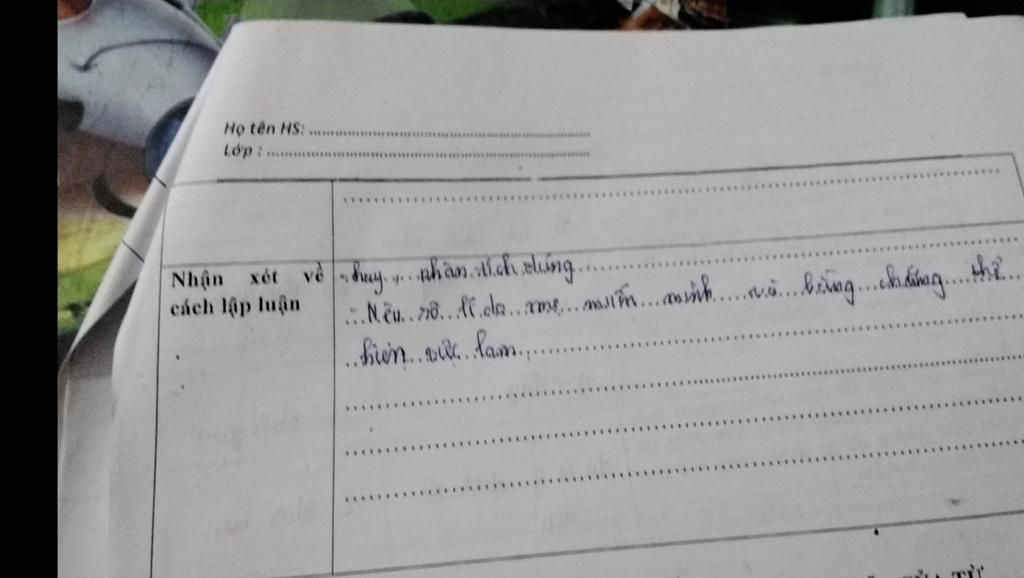 Họ tên HS: ........................................
Lớp : ........................................
Nhận xét về
cách lập luận
- hay, phân tích đúng
- Nêu rõ lí do mẹ muốn mình và bằng chứng thể
hiện việc làm